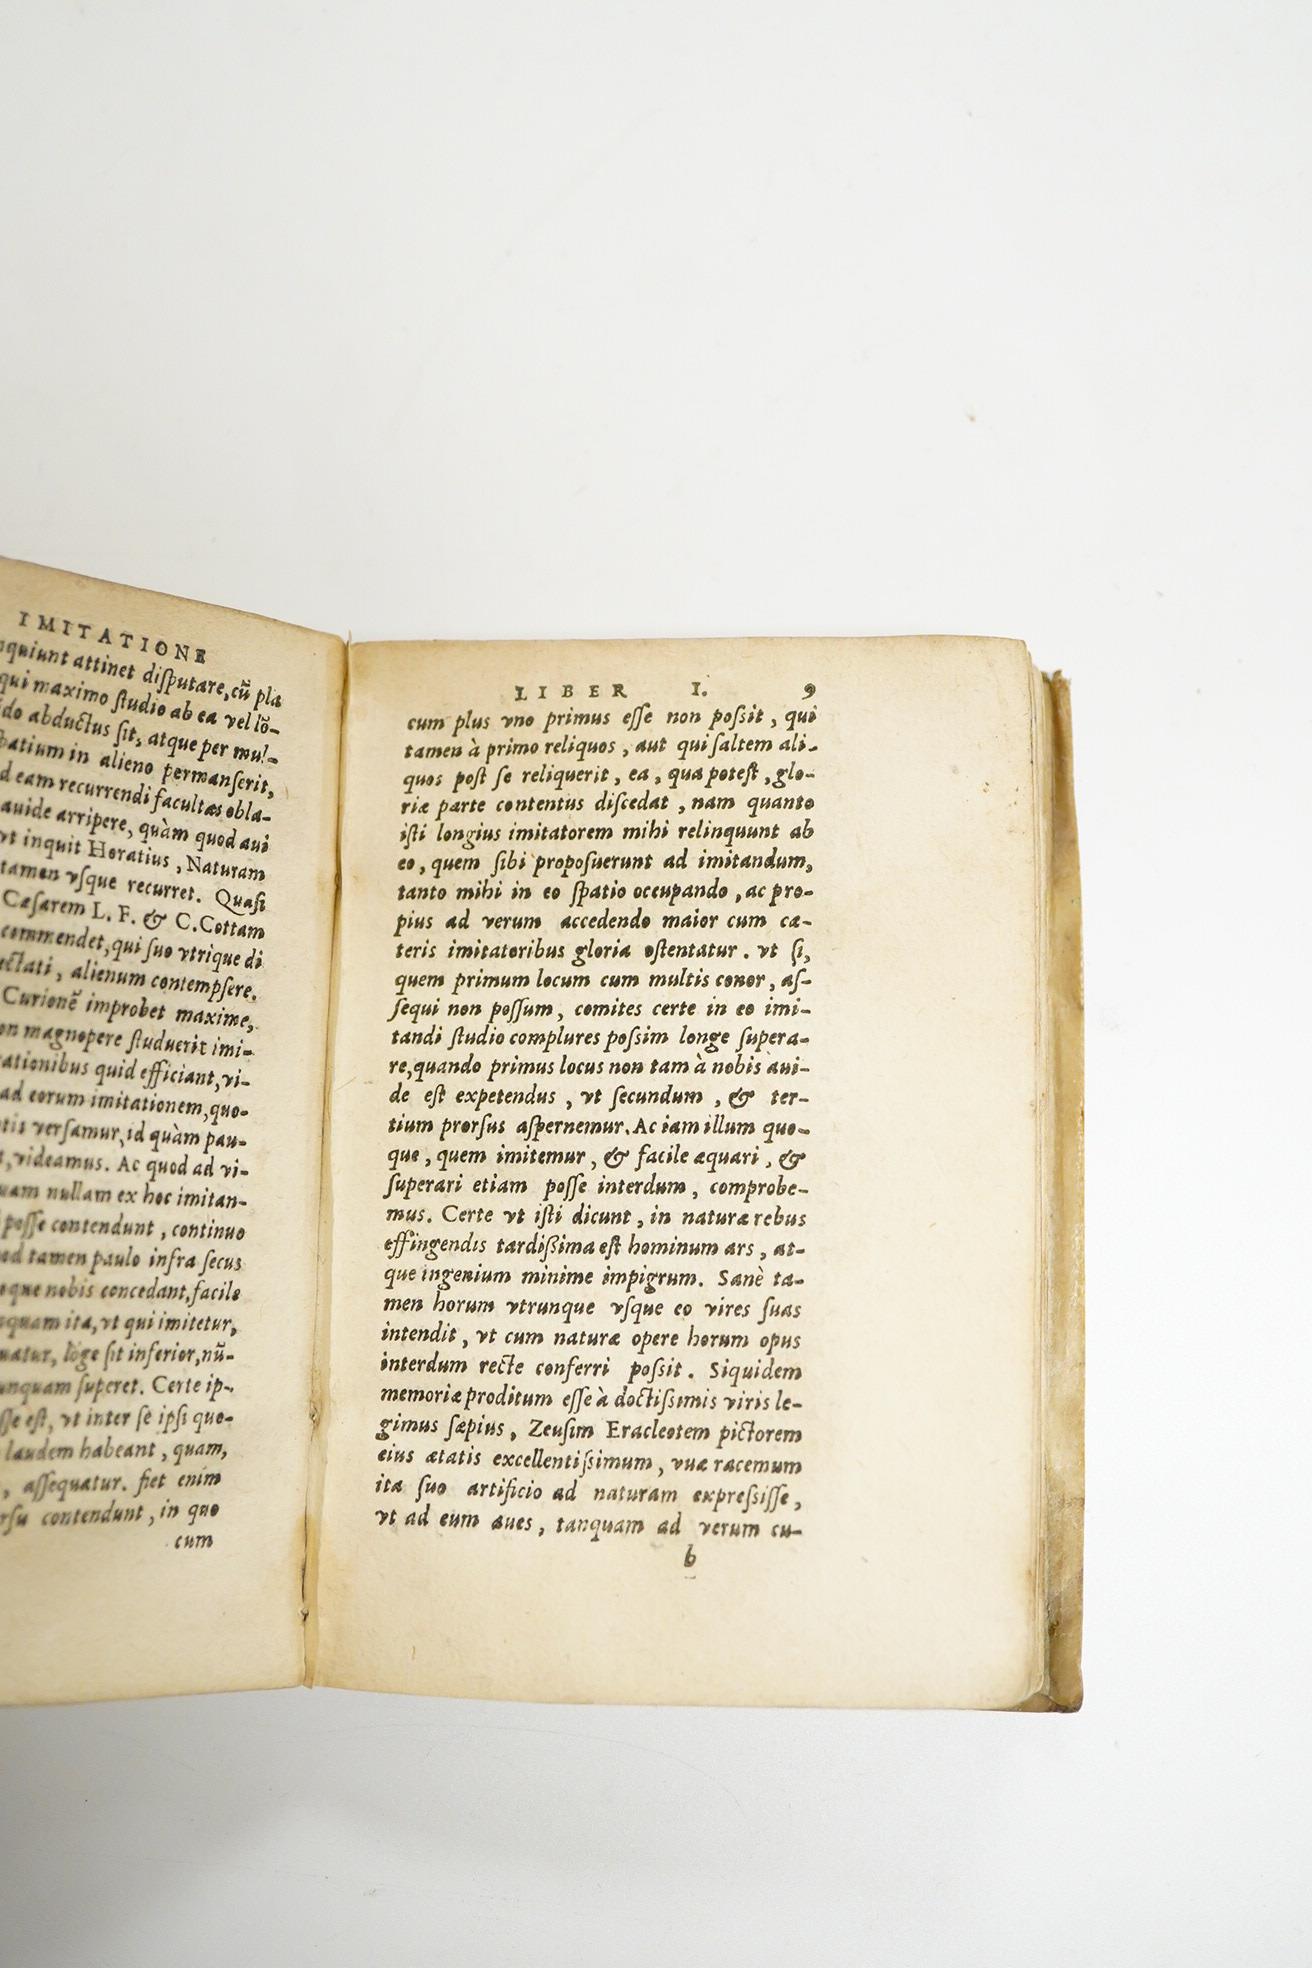 IMITATIONE
quiunt attinet diſputare,cũ pla
qui maximo ſtudio ab ea vel lõ-
do abductus ſit, atque per mul-
patium in alieno permanſerit,
d eam recurrendi facultas obla-
auide arripere, quàm quod aui
vt inquit Horatius, Naturam
tamen vſque recurret. Quaſi
Cæſarem L. F. & C. Cottam
commendet, qui ſuo vtrique di
ctati, alienum contempſere.
Curionẽ improbet maxime,
on magnopere ſtuduerit imi-
ationibus quid efficiant, vi-
ad eorum imitationem, quo-
tis verſamur, id quàm pau-
t, videamus. Ac quod ad vi-
uam nullam ex hoc imitan-
poſſe contendunt, continuo
ad tamen paulo infra ſecus
oque nobis concedant, facile
quam ita, vt qui imitetur,
uatur, lõge ſit inferior, nũ-
unquam ſuperet. Certe ip-
ſſe eſt, vt inter ſe ipſi quo-
laudem habeant, quam,
, aſſequatur. fiet enim
rſu contendunt, in quo
cum
LIBER I. 9
cum plus vno primus eſſe non poſsit, qui
tamen à primo reliquos, aut qui ſaltem ali-
quos poſt ſe reliquerit, ea, qua poteſt, glo-
riæ parte contentus diſcedat, nam quanto
iſti longius imitatorem mihi relinquunt ab
eo, quem ſibi propoſuerunt ad imitandum,
tanto mihi in eo ſpatio occupando, ac pro-
pius ad verum accedendo maior cum cæ-
teris imitatoribus gloria oſtentatur. vt ſi,
quem primum locum cum multis conor, aſ-
ſequi non poſſum, comites certe in eo imi-
tandi ſtudio complures poſsim longe ſupera-
re, quando primus locus non tam à nobis aui-
de eſt expetendus, vt ſecundum, & ter-
tium prorſus aſpernemur. Ac iam illum quo-
que, quem imitemur, & facile æquari, &
ſuperari etiam poſſe interdum, comprobe-
mus. Certe vt iſti dicunt, in naturæ rebus
effingendis tardiſsima eſt hominum ars, at-
que ingenium minime impigrum. Sanè ta-
men horum vtrunque vſque eo vires ſuas
intendit, vt cum naturæ opere horum opus
interdum recte conferri poſsit. Siquidem
memoriæ proditum eſſe à doctiſsimis viris le-
gimus ſæpius, Zeuſim Eracleotem pictorem
eius ætatis excellentiſsimum, vuæ racemum
ita ſuo artificio ad naturam expreſsiſſe,
vt ad eum aues, tanquam ad verum cu-
b